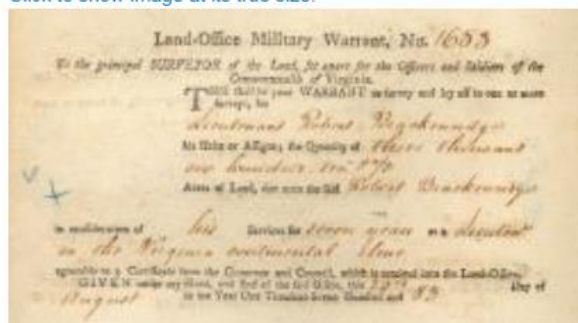 Land-Office Military Warrant, No. 1633
To the principal SURVEYOR of the Land, set apart for the Officers and Soldiers of the
Commonwealth of Virginia.
THIS shall be your WARRANT to survey and lay off in one or more
Surveys, for
Lieutenant Robert
his Heirs or Assigns, the Quantity of three thousand
one hundred
Acres of Land, due unto the said Robert
in consideration of his Services for seven years as a Lieutenant
in the Virginia continental Line
agreeable to a Certificate from the Governor and Council, which is received into the Land-Office.
GIVEN under my Hand, and Seal of the said Office, this Day of
August in the Year One Thousand Seven Hundred and 83